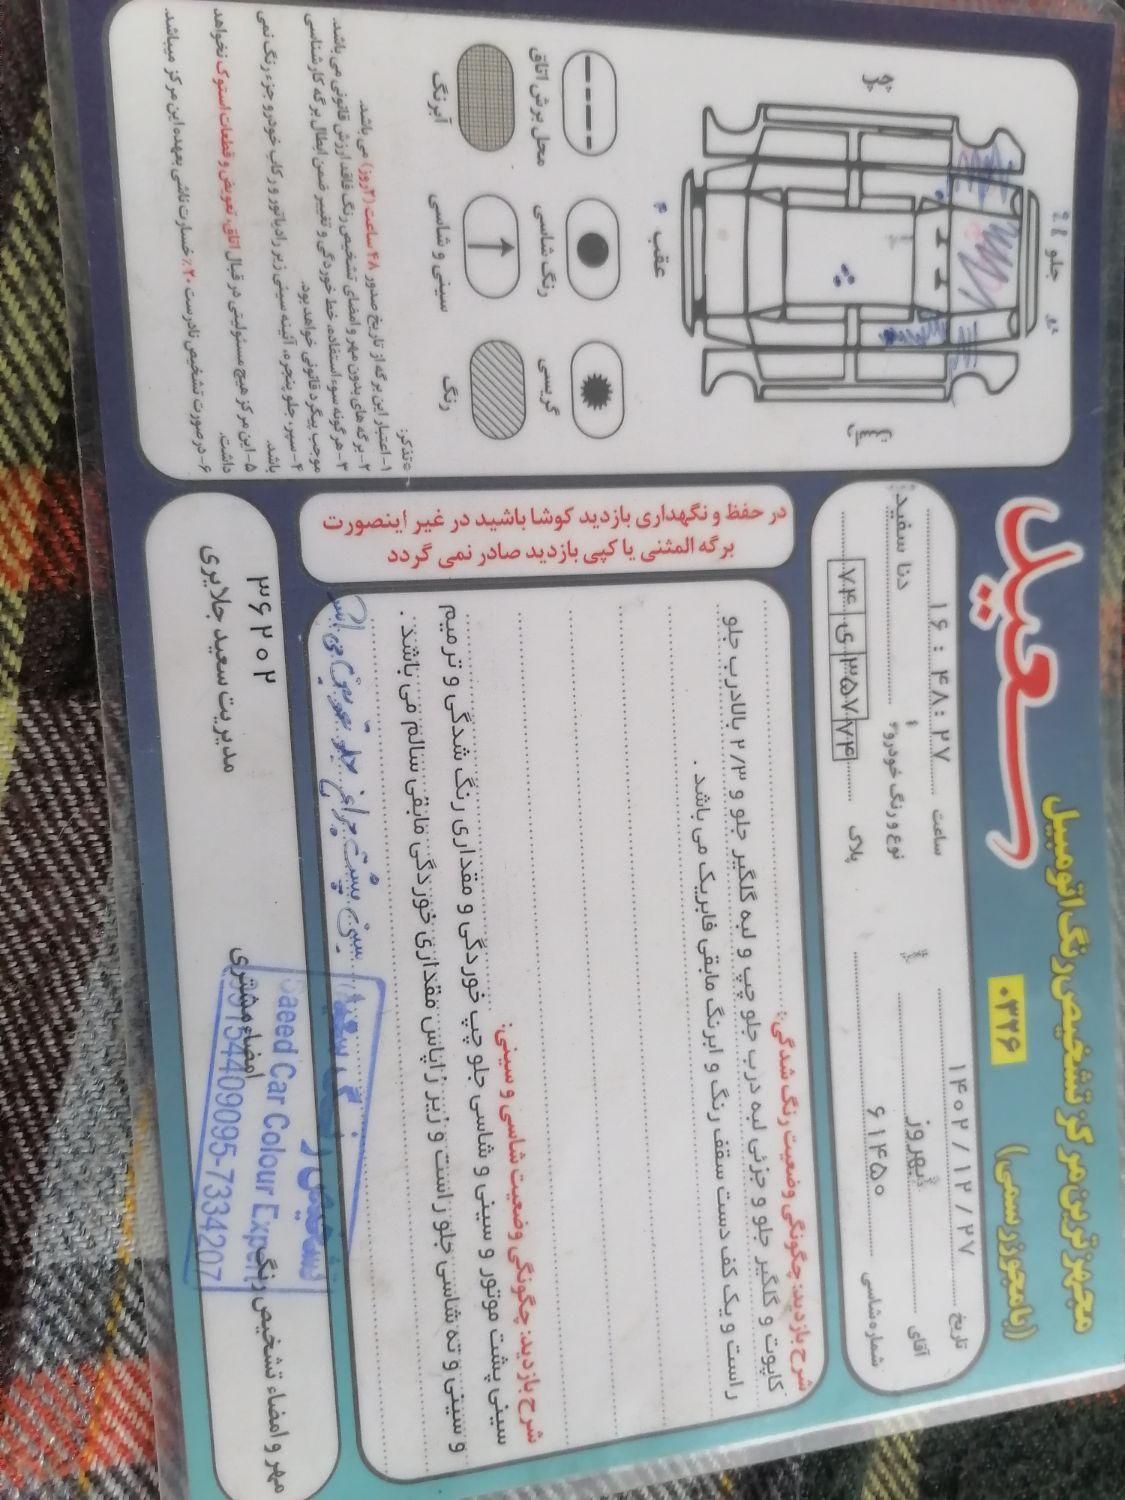 مجهز ترین مرکز تشخیص رنگ اتومبیل
سعید
((با مجوز رسمی)
۰۳۲۶
تاریخ ۱۴۰۲/۱۲/۲۷
ساعت ۱۶:۴۸:۲۷
آقای بهروز
نوع و رنگ خودرو دنا سفید
شماره شاسی ۶۱۴۵۰
پلاک ۷۴ ی ۳۵۷ ۷۴
جلو
عقب
محل برش اتاق
رنگ شاسی
گریسی
آبرنگ
سینی و شاسی
رنگ
تذکر:
۱-اعتبار این برگه از تاریخ صدور ۴۸ ساعت (۲روز) می باشد.
۲-برگه های بدون مهر و امضای تشخیص رنگ فاقد ارزش قانونی می باشد.
۳-هرگونه سوء استفاده، خط خوردگی و تغییر ضمن ابطال برگه کارشناسی
موجب پیگرد قانونی خواهد بود.
۴-سپر، جلو پنجره، آئینه سینی زیر رادیاتور و رکاب خودرو جزء رنگ نمی
باشد.
۵-این مرکز هیچ مسئولیتی در قبال اتاق، تعویض و قطعات استوک نخواهد
داشت.
۶-در صورت تشخیص نادرست ۲۰٪ خسارت ناشی بعهده این مرکز میباشد.
در حفظ و نگهداری بازدید کوشا باشید در غیر اینصورت
برگه المثنی یا کپی بازدید صادر نمی گردد
شرح بازدید: چگونگی وضعیت رنگ شدگی:
کاپوت و گلگیر جلو و جزئی لبه درب جلو چپ و لبه گلگیر جلو و ۲/۳ بالادرب جلو
راست و یک کف دست سقف رنگ و ابرنگ مابقی فابریک می باشد.
شرح بازدید: چگونگی وضعیت شاسی و سینی:
سینی پشت موتور و سینی و شاسی جلو چپ خوردگی و مقداری رنگ شدگی و ترمیم
و سینی و ته شاسی جلو راست و زیر زاپاس مقداری خوردگی مابقی سالم می باشد.
سینی پشت چراغ جلو تعویض می باشد
مهر و امضاء تشخیص رنگ
امضاء مشتری
Saeed Car Colour Expert
09154409095-7334207
۳۶۲۰۲
مدیریت سعید جلایری